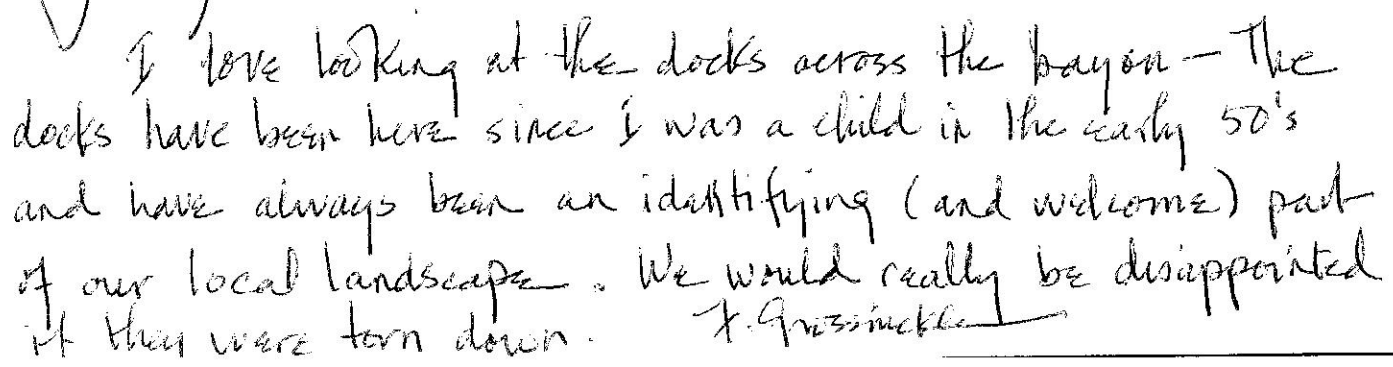 I love looking at the docks across the bayou - The
docks have been here since I was a child in the early 50's
and have always been an identifying (and welcome) part
of our local landscape. We would really be disappointed
if they were torn down.